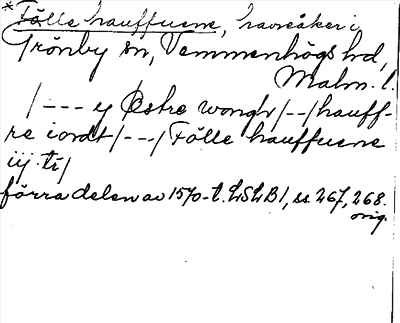 *Fälle hauffuene, havreåker i
Grönby sn, Vemmenhögs hd,
Malm. l.
/--- y Østre wongh/--/hauff-
re iordt/---/Fälle hauffuene
iij tr/
förra delen av 1570-t. LSLB1, ss. 267, 268.
orig.